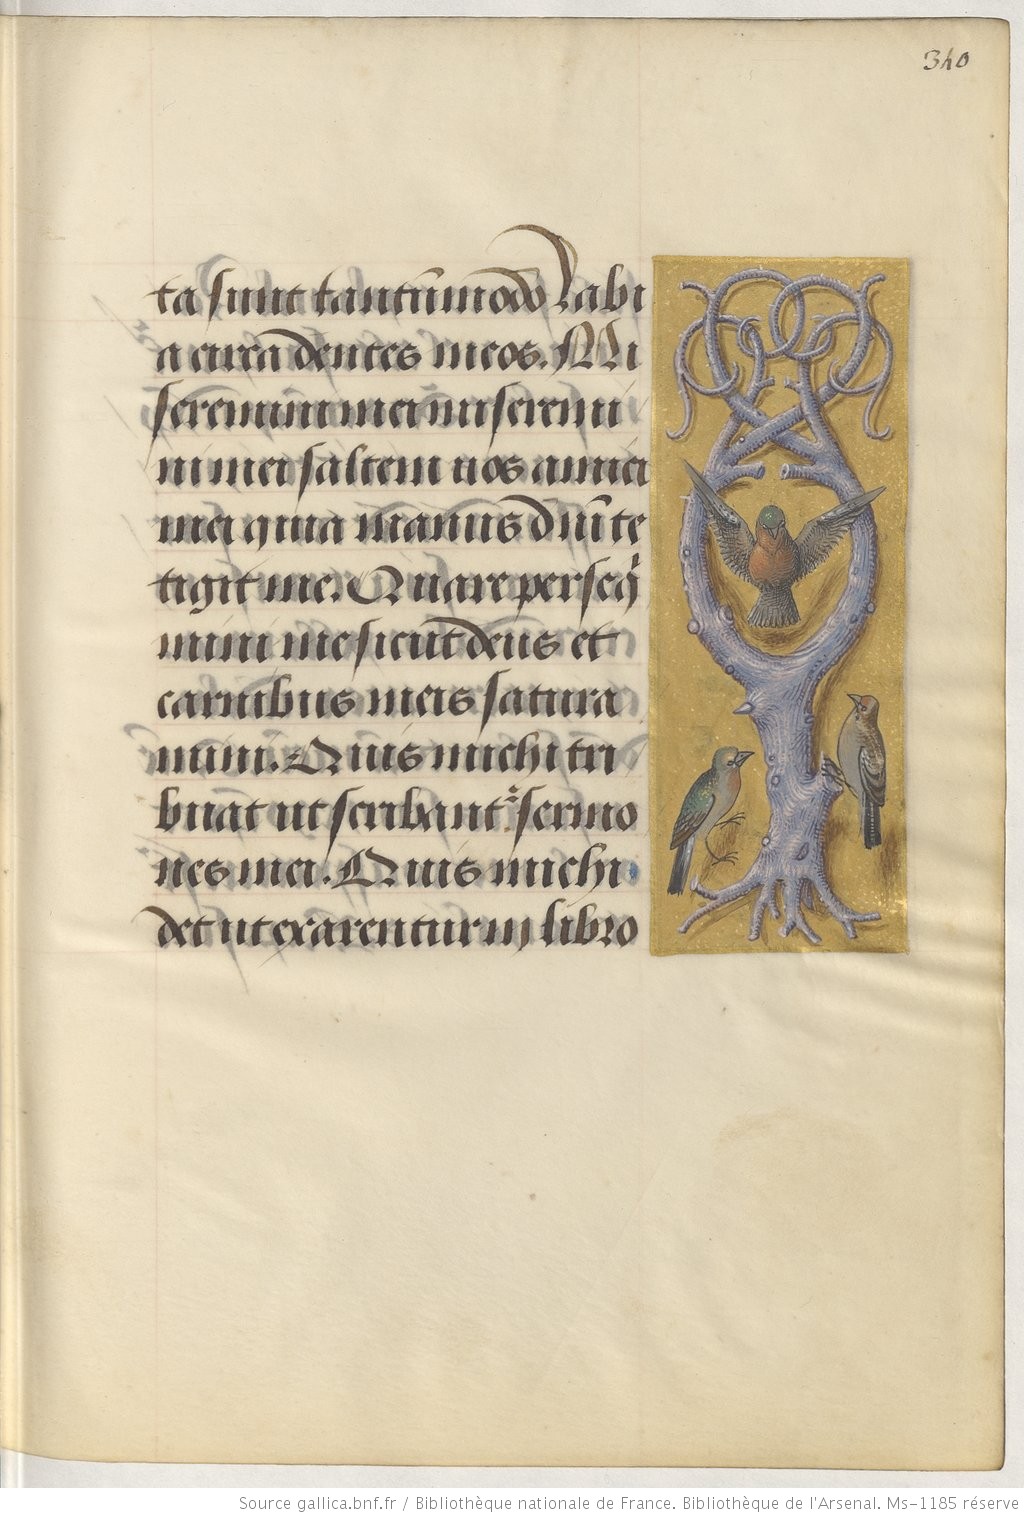 340
ta sunt tantūmodo labi
a circa dentes meos. Mi
seremini mei miseremi
ni mei saltem vos amici
mei quia manus dn̄i te
tigit me. Quare perseq̄
mini me sicut deus et
carnibus meis satura
mini. Quis michi tri
buat ut scribant᷑ sermo
nes mei. Quis michi
det ut exarentur in libro
Source gallica.bnf.fr / Bibliothèque nationale de France. Bibliothèque de l'Arsenal. Ms-1185 réserve